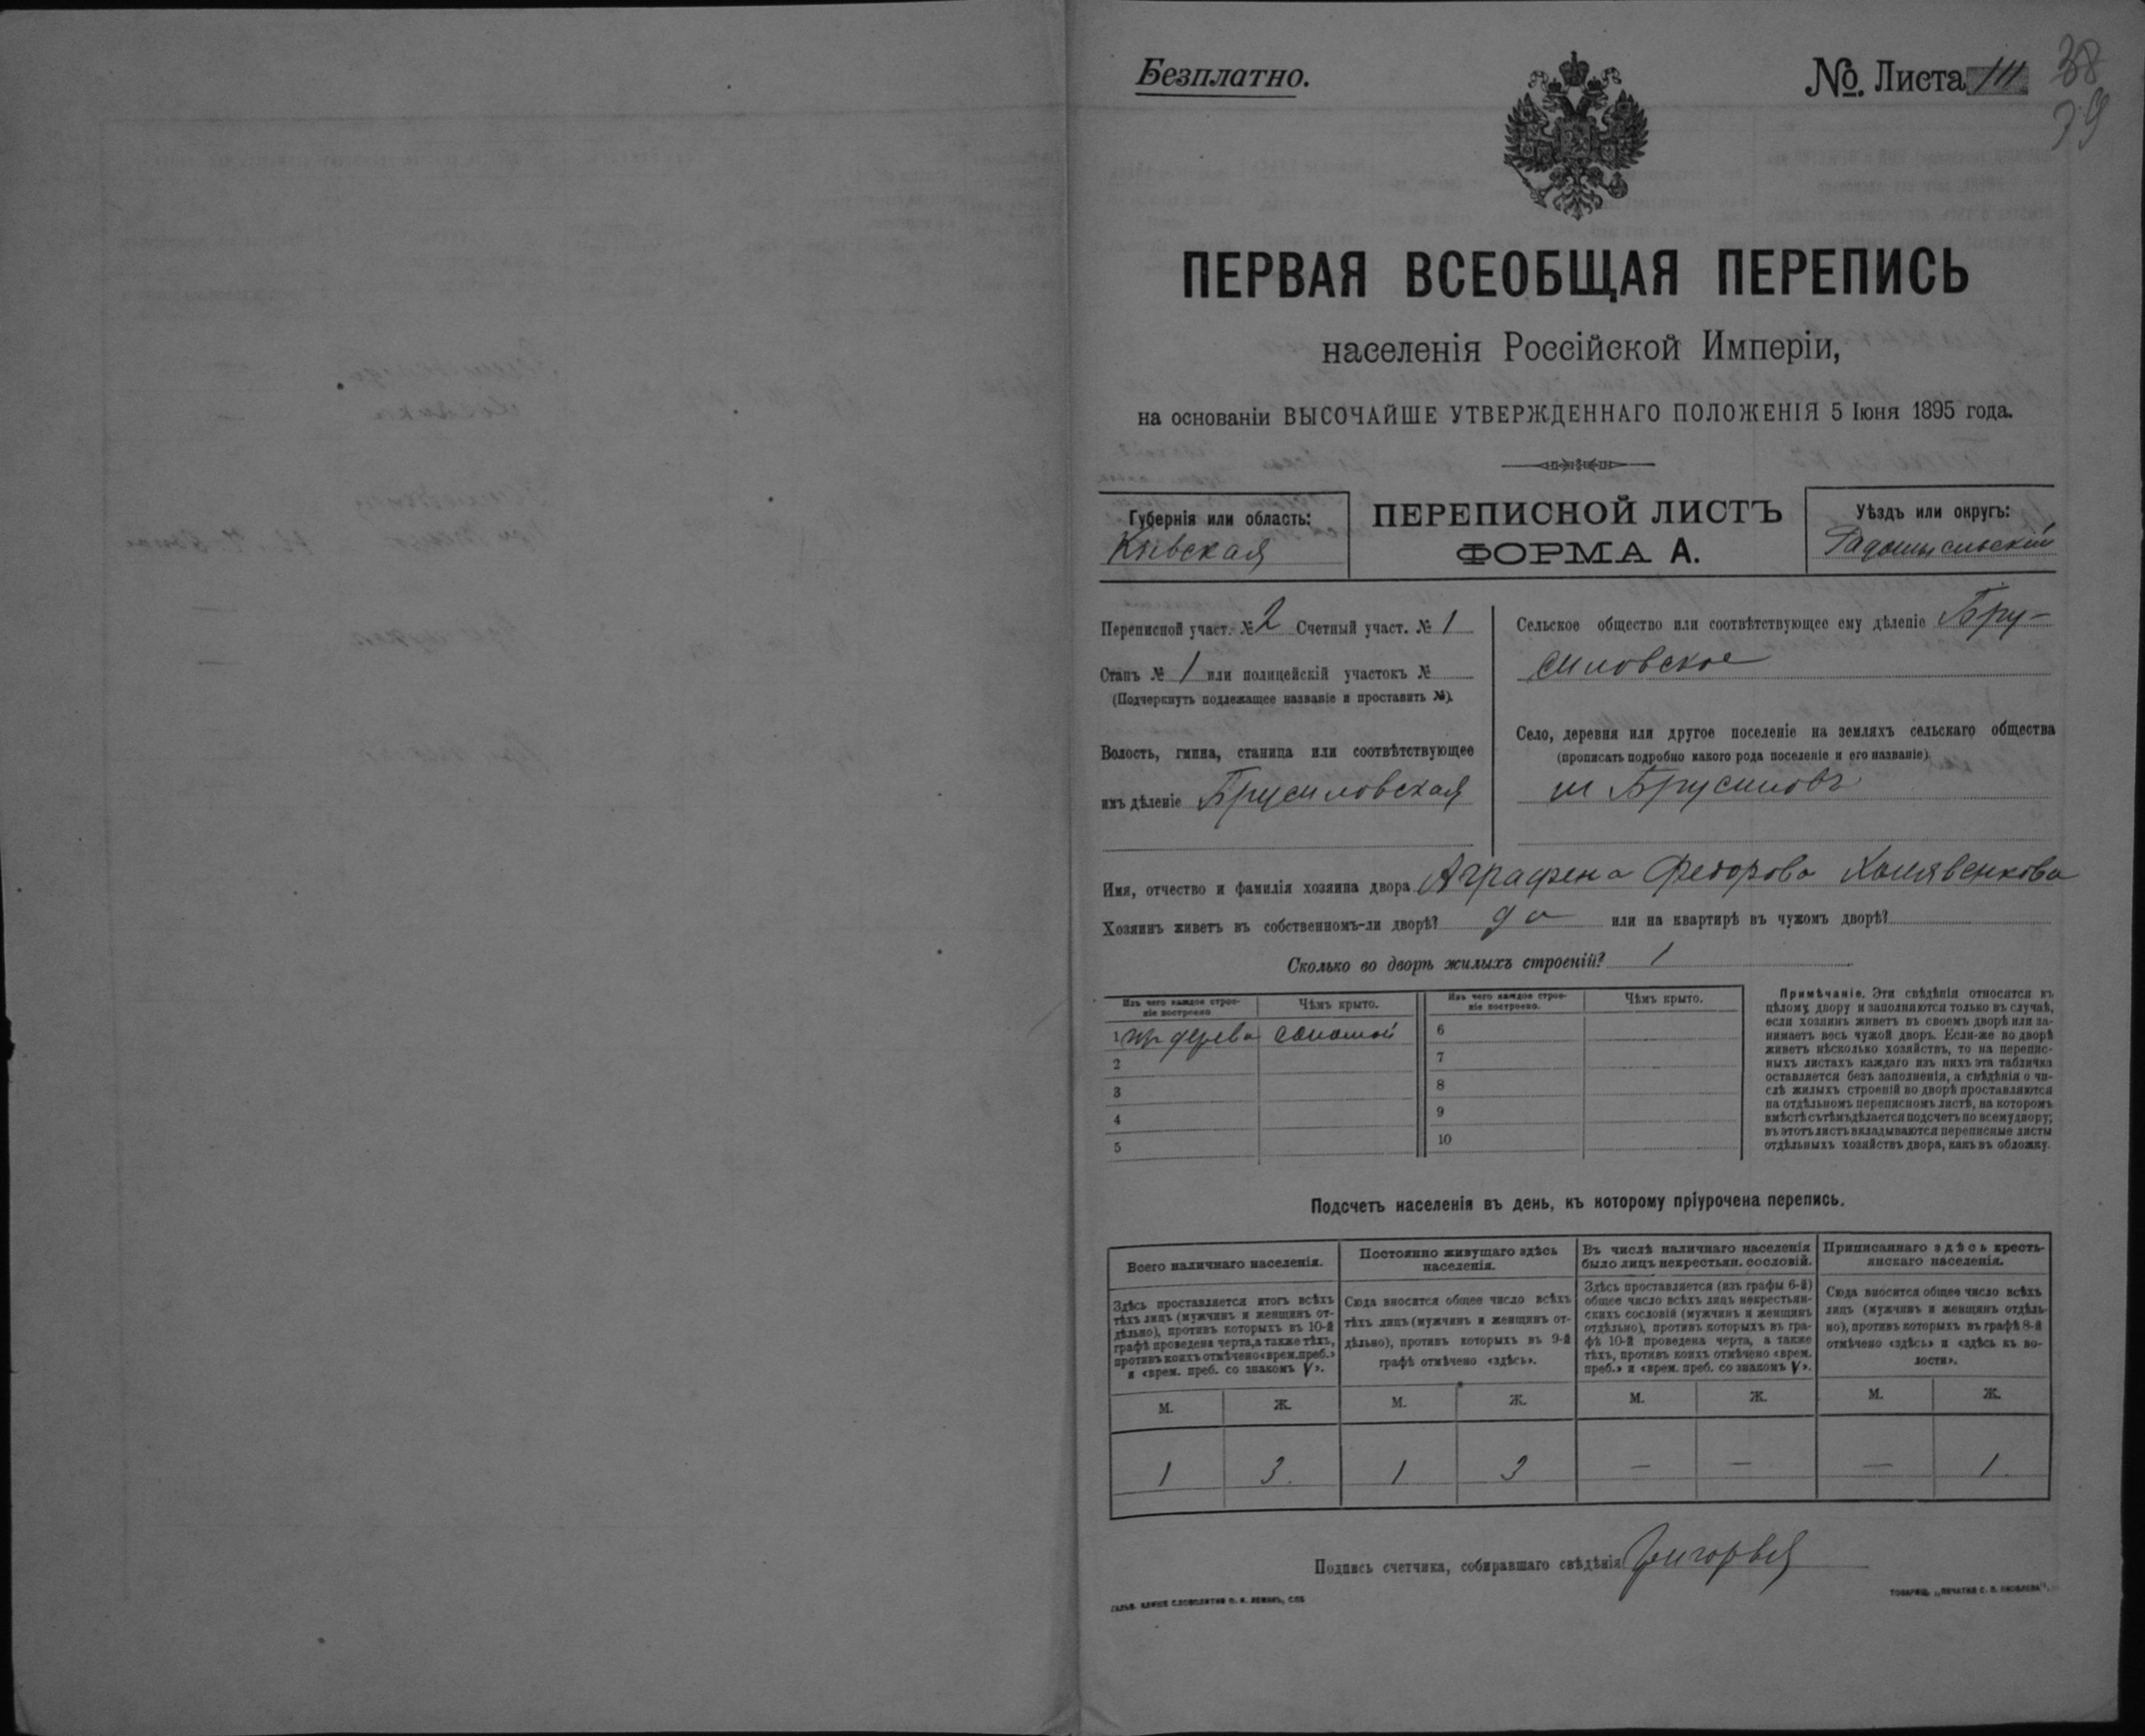 Безплатно.
№. Листа 111
38
39
ПЕРВАЯ ВСЕОБЩАЯ ПЕРЕПИСЬ
населенія Россійской Имперіи,
на основаніи ВЫСОЧАЙШЕ УТВЕРЖДЕННАГО ПОЛОЖЕНІЯ 5 Іюня 1895 года.
Губернія или область:
Кіевская
ПЕРЕПИСНОЙ ЛИСТЪ
ФОРМА А.
Уѣздъ или округъ:
Радомысльскій
Переписной участ. № 2 Счетный участ. № 1
Станъ № 1 или полицейскій участокъ №
(Подчеркнуть подлежащее названіе и проставить №).
Волость, гмина, станица или соотвѣтствующее
имъ дѣленіе Брусиловская
Сельское общество или соотвѣтствующее ему дѣленіе Бру-
силовское
Село, деревня или другое поселеніе на земляхъ сельскаго общества
(прописать подробно какого рода поселеніе и его названіе)
м Брусиловъ
Имя, отчество и фамилія хозяина двора Аграфена Федорова Халявенкова
Хозяинъ живетъ въ собственномъ-ли дворѣ? да или на квартирѣ въ чужомъ дворѣ?
Сколько во дворѣ жилыхъ строеній? 1
Изъ чего каждое строе-
ніе построено
Чѣмъ крыто.
Изъ чего каждое строе-
ніе построено.
Чѣмъ крыто.
1 изъ дерева соломой
2
3
4
5
6
7
8
9
10
Примѣчаніе. Эти свѣдѣнія относятся къ
цѣлому двору и заполняются только въ случаѣ,
если хозяинъ живетъ въ своемъ дворѣ или за-
нимаетъ весь чужой дворъ. Если-же во дворѣ
живетъ нѣсколько хозяйствъ, то на перепис-
ныхъ листахъ каждаго изъ нихъ эта табличка
оставляется безъ заполненія, а свѣдѣнія о чи-
слѣ жилыхъ строеній во дворѣ проставляются
на отдѣльномъ переписномъ листѣ, на которомъ
вмѣстѣ съ тѣмъ дѣлается подсчетъ по всему двору;
въ этотъ листъ вкладываются переписные листы
отдѣльныхъ хозяйствъ двора, какъ въ обложку.
Подсчетъ населенія въ день, къ которому пріурочена перепись.
Всего наличнаго населенія.
Здѣсь проставляется итогъ всѣхъ
тѣхъ лицъ (мужчинъ и женщинъ от-
дѣльно), противъ которыхъ въ 10-й
графѣ проведена черта, а также тѣхъ,
противъ коихъ отмѣчено «врем. преб.»
и «врем. преб. со знакомъ V».
Постоянно живущаго здѣсь
населенія.
Сюда вносится общее число всѣхъ
тѣхъ лицъ (мужчинъ и женщинъ от-
дѣльно), противъ которыхъ въ 9-й
графѣ отмѣчено «здѣсь».
Въ числѣ наличнаго населенія
было лицъ некрестьян. сословій.
Здѣсь проставляется (изъ графы 6-й)
общее число всѣхъ лицъ некрестьян-
скихъ сословій (мужчинъ и женщинъ
отдѣльно), противъ которыхъ въ гра-
фѣ 10-й проведена черта, а также
тѣхъ, противъ коихъ отмѣчено «врем.
преб.» и «врем. преб. со знакомъ V».
Приписаннаго здѣсь кресть-
янскаго населенія.
Сюда вносится общее число всѣхъ
лицъ (мужчинъ и женщинъ отдѣль-
но), противъ которыхъ въ графѣ 8-й
отмѣчено «здѣсь» и «здѣсь къ во-
лости».
М. Ж. М. Ж. М. Ж. М. Ж.
1 3 1 3 — — — 1
Подпись счетчика, собиравшаго свѣдѣнія
ГАЛЬВ. КЛИШЕ СЛОВОЛИТНИ О. И. ЛЕМАНЪ, СПБ
ТОВАРИЩ. „ПЕЧАТНЯ С. П. ЯКОВЛЕВА".